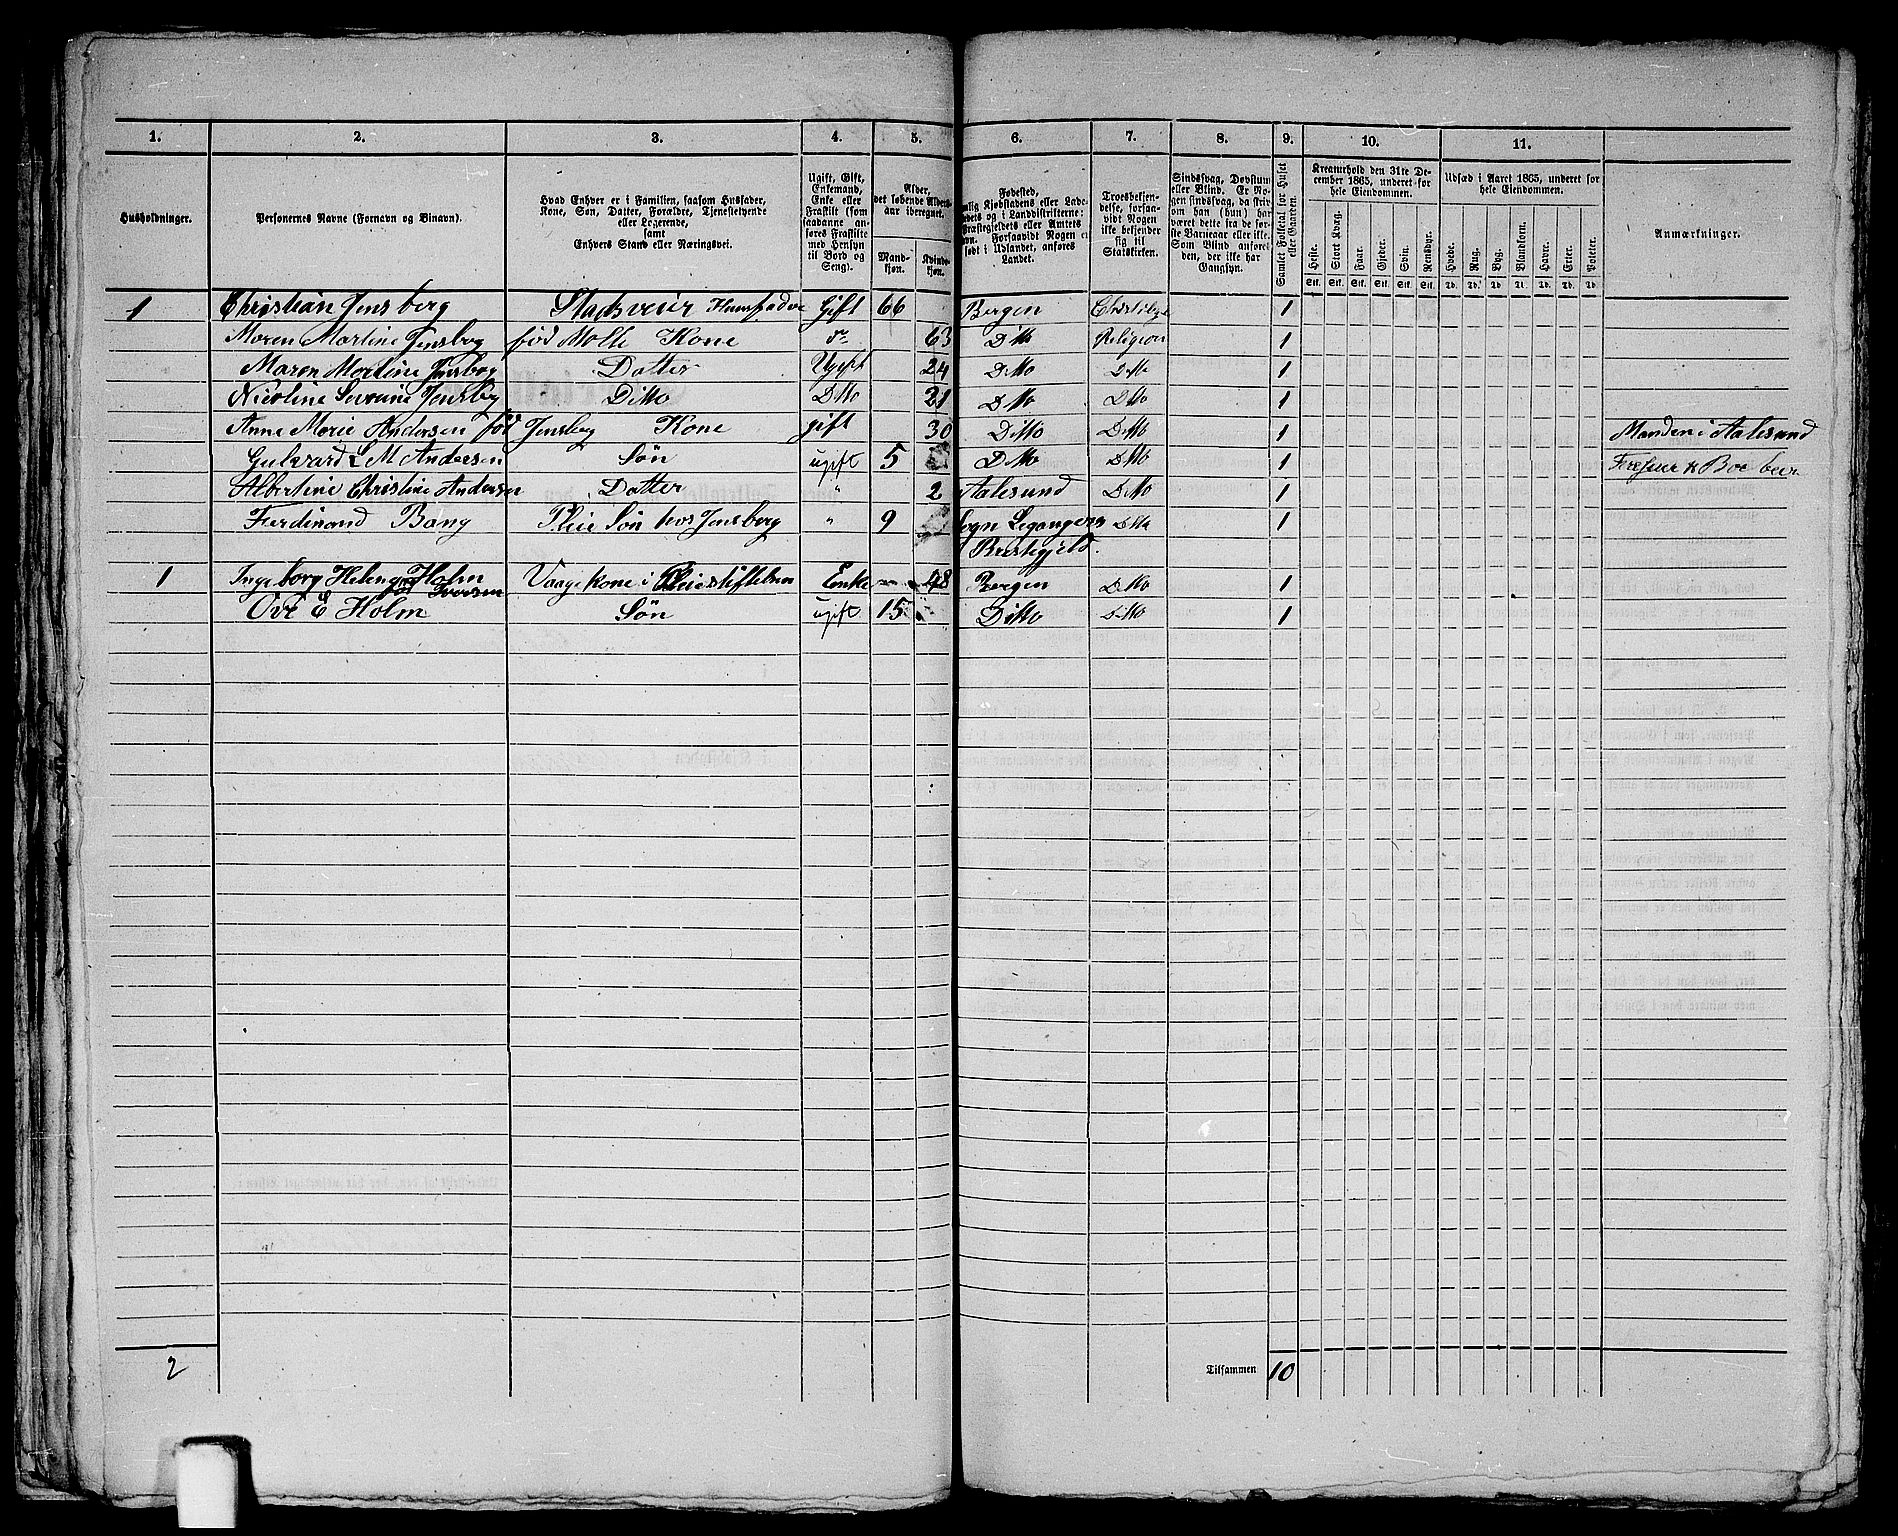 1. 2. 3. 4. 5. 6. 7. 8. 9. 10. 11.
Husholdninger.
Personernes Navne (Fornavn og Binavn).
Hvad Enhver er i Familien, saasom Husfader,
Kone, Søn, Datter, Forældre, Tjenestetyende
eller Logerende,
samt
Enhvers Stand eller Næringsvei.
Ugift, Gift,
Enkemand,
Enke eller
Fraskilt (som
saadanne an-
føres Fraskilte
med Hensyn
til Bord og
Seng).
Alder,
det løbende Alders-
aar iberegnet.
Mand-
kjøn.
Kvinde-
kjøn.
Fødested,
nlig Kjøbstadens eller Lade-
stedets og i Landdistrikterne:
Præstegjeldets eller Amtets
vn. Forsaavidt Nogen er
født i Udlandet, anføres
Landet.
Troesbekjen-
delse, forsaa-
vidt Nogen
ikke bekjender
sig til
Statskirken.
Sindssvag, Døvstum
eller Blind. Er No-
gen sindssvag, da skriv
om han (hun) har
været dette fra de før-
ste Barneaar eller ikke.
Som Blind anføres
den, der ikke har
Gangsyn.
Samlet Folketal for Huset
eller Gaarden.
Kreaturhold den 31te De-
cember 1865, underet for
hele Eiendommen.
Heste. Stort Kvæg. Faar. Gjeder. Svin. Rensdyr.
Stk. Stk. Stk. Stk. Stk. Stk.
Udsæd i Aaret 1865, underet for
hele Eiendommen.
Hvede. Rug. Byg. Blandkorn. Havre. Erter. Poteter.
Td. Td. Td. Td. Td. Td. Td.
Anmærkninger.
1 Christian Jensberg Stadsveier Huusfader Gift 66 Bergen Christelige 1
Maren Martine Jensberg fød Molle Kone do 63 Ditto Religion 1
Maren Martine Jensberg Datter Ugift 24 Ditto Ditto 1
Nicoline Severine Jensberg Ditto Ditto 21 Ditto Ditto 1
Anne Marie Andersen fød Jensberg Kone gift 30 Ditto Ditto 1 Manden i Aalesund
L M Andersen Søn ugift 5 Ditto Ditto 1
Albertine Christine Andersen Datter " 2 Aalesund Ditto 1
Ferdinand Bang Pleie Søn hos Jensberg " 9 Sogn Leganger Ditto 1
Prestegjeld.
1 Ingeborg Helene Holm Vaagekone i Pleiestiftelsen Enke 48 Bergen Ditto 1
Ove E Holm Søn ugift 15 Ditto Ditto 1
2
Tilsammen 10